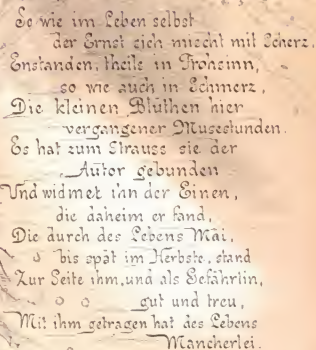 So wie im Leben selbst
der Ernst sich mischt mit Scherz,
Enstanden, theils in Frohsinn,
so wie auch in Schmerz,
Die kleinen Blüthen hier
vergangener Musestunden.
Es hat zum Strauss sie der
Autor gebunden
Und widmet ihn der Einen,
die daheim er fand,
Die durch des Lebens Mai,
bis spät im Herbste, stand
Zur Seite ihm, und als Gefährtin,
gut und treu,
Mit ihm getragen hat des Lebens
Mancherlei.